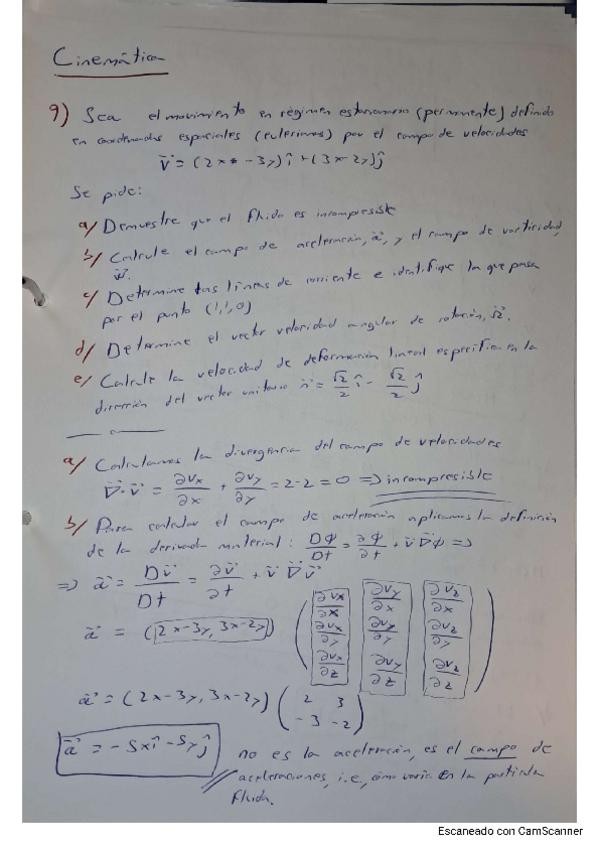 Cinemática
9) Sea el movimiento en régimen estacionario (permanente) definido
en coordenadas espaciales (eulerianas) por el campo de velocidades
v⃗ = (2x - 3y) î + (3x - 2y) ĵ
Se pide:
a/ Demuestre que el fluido es incompresible
b/ Calcule el campo de aceleración, a⃗, y el campo de vorticidad,
w⃗.
c/ Determine las líneas de corriente e identifique la que pasa
por el punto (1,1,0)
d/ Determine el vector velocidad angular de rotación, Ω⃗.
e/ Calcule la velocidad de deformación lineal específica en la
dirección del vector unitario n⃗ = √2/2 î - √2/2 ĵ
a/ Calculamos la divergencia del campo de velocidades
∇⃗·v⃗ = ∂vx/∂x + ∂vy/∂y = 2-2 = 0 ⇒ incompresible
b/ Para calcular el campo de aceleración aplicamos la definición
de la derivada material: Dφ/Dt = ∂φ/∂t + v⃗ ∇⃗φ ⇒
⇒ a⃗ = Dv⃗/Dt = ∂v⃗/∂t + v⃗ ∇⃗v⃗
a⃗ = (2x-3y, 3x-2y) (∂vx/∂x ∂vy/∂x ∂vz/∂x
∂vx/∂y ∂vy/∂y ∂vz/∂y
∂vx/∂z ∂vy/∂z ∂vz/∂z)
a⃗ = (2x-3y, 3x-2y) (2 3
-3 -2)
a⃗ = -5x î - 5y ĵ no es la aceleración, es el campo de
aceleraciones, i.e., cómo varía en la partícula
fluida.
Escaneado con CamScanner